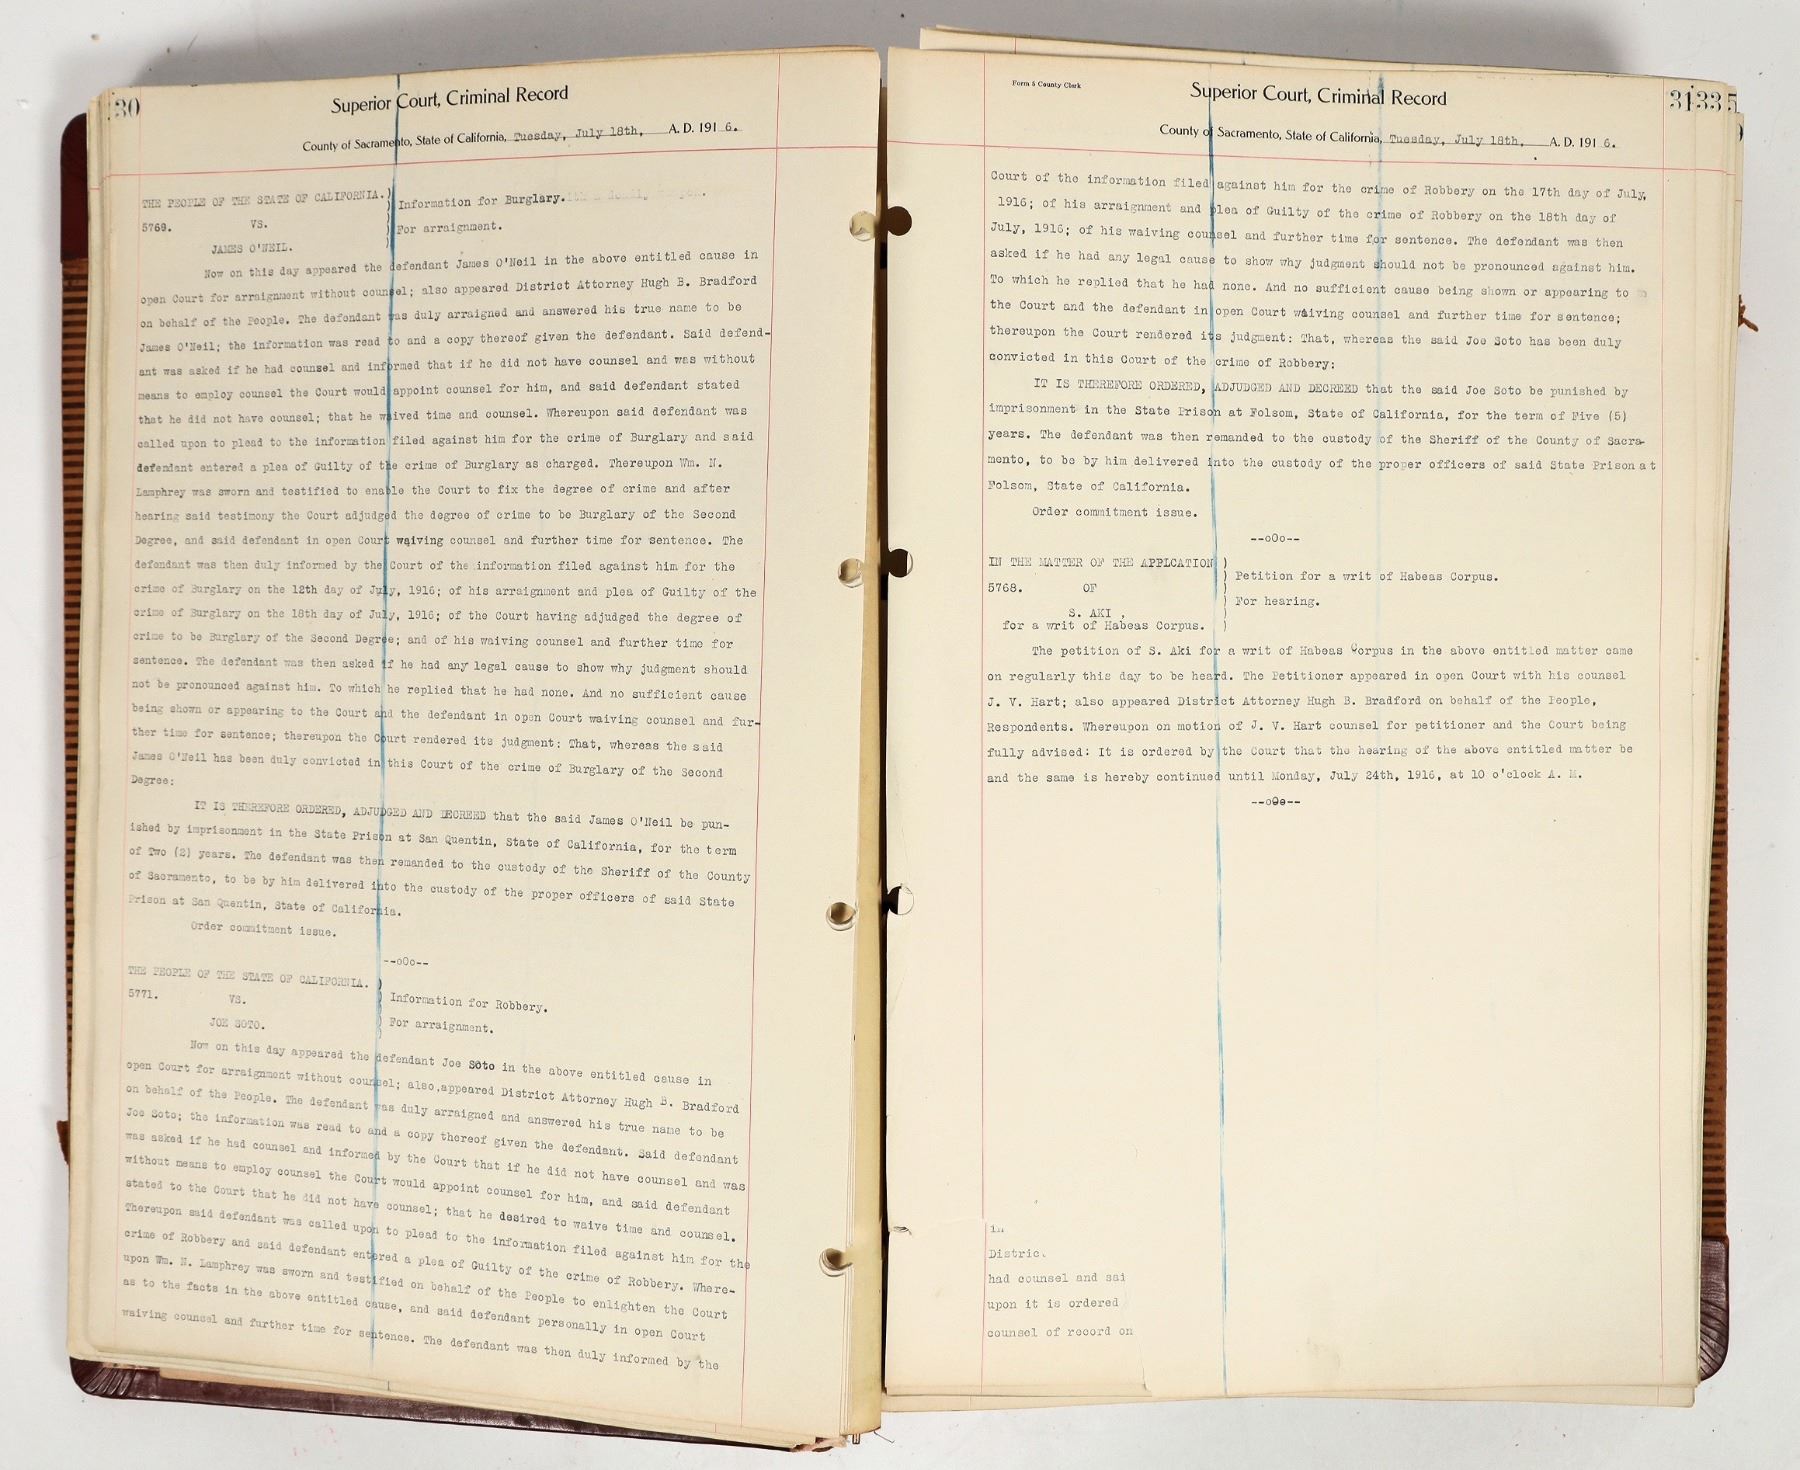 30
Superior Court, Criminal Record
County of Sacramento, State of California, Tuesday, July 18th, A. D. 191 6.
THE PEOPLE OF THE STATE OF CALIFORNIA.) Information for Burglary.
5769. VS. ) For arraignment.
JAMES O'NEIL. )
Now on this day appeared the defendant James O'Neil in the above entitled cause in
open Court for arraignment without counsel; also appeared District Attorney Hugh B. Bradford
on behalf of the People. The defendant was duly arraigned and answered his true name to be
James O'Neil; the information was read to and a copy thereof given the defendant. Said defend-
ant was asked if he had counsel and informed that if he did not have counsel and was without
means to employ counsel the Court would appoint counsel for him, and said defendant stated
that he did not have counsel; that he waived time and counsel. Whereupon said defendant was
called upon to plead to the information filed against him for the crime of Burglary and said
defendant entered a plea of Guilty of the crime of Burglary as charged. Thereupon Wm. N.
Lamphrey was sworn and testified to enable the Court to fix the degree of crime and after
hearing said testimony the Court adjudged the degree of crime to be Burglary of the Second
Degree, and said defendant in open Court waiving counsel and further time for sentence. The
defendant was then duly informed by the Court of the information filed against him for the
crime of Burglary on the 12th day of July, 1916; of his arraignment and plea of Guilty of the
crime of Burglary on the 18th day of July, 1916; of the Court having adjudged the degree of
crime to be Burglary of the Second Degree; and of his waiving counsel and further time for
sentence. The defendant was then asked if he had any legal cause to show why judgment should
not be pronounced against him. To which he replied that he had none. And no sufficient cause
being shown or appearing to the Court and the defendant in open Court waiving counsel and fur-
ther time for sentence; thereupon the Court rendered its judgment: That, whereas the said
James O'Neil has been duly convicted in this Court of the crime of Burglary of the Second
Degree:
IT IS THEREFORE ORDERED, ADJUDGED AND DECREED that the said James O'Neil be pun-
ished by imprisonment in the State Prison at San Quentin, State of California, for the term
of Two (2) years. The defendant was then remanded to the custody of the Sheriff of the County
of Sacramento, to be by him delivered into the custody of the proper officers of said State
Prison at San Quentin, State of California.
Order commitment issue.
--oOo--
THE PEOPLE OF THE STATE OF CALIFORNIA. )
5771. VS. ) Information for Robbery.
JOE SOTO. ) For arraignment.
Now on this day appeared the defendant Joe Soto in the above entitled cause in
open Court for arraignment without counsel; also,appeared District Attorney Hugh B. Bradford
on behalf of the People. The defendant was duly arraigned and answered his true name to be
Joe Soto; the information was read to and a copy thereof given the defendant. Said defendant
was asked if he had counsel and informed by the Court that if he did not have counsel and was
without means to employ counsel the Court would appoint counsel for him, and said defendant
stated to the Court that he did not have counsel; that he desired to waive time and counsel.
Thereupon said defendant was called upon to plead to the information filed against him for the
crime of Robbery and said defendant entered a plea of Guilty of the crime of Robbery. Where-
upon Wm. N. Lamphrey was sworn and testified on behalf of the People to enlighten the Court
as to the facts in the above entitled cause, and said defendant personally in open Court
waiving counsel and further time for sentence. The defendant was then duly informed by the
Form 5 County Clerk
Superior Court, Criminal Record
31 33 5
County of Sacramento, State of California, Tuesday, July 18th, A. D. 191 6.
Court of the information filed against him for the crime of Robbery on the 17th day of July,
1916; of his arraignment and plea of Guilty of the crime of Robbery on the 18th day of
July, 1916; of his waiving counsel and further time for sentence. The defendant was then
asked if he had any legal cause to show why judgment should not be pronounced against him.
To which he replied that he had none. And no sufficient cause being shown or appearing to
the Court and the defendant in open Court waiving counsel and further time for sentence;
thereupon the Court rendered its judgment: That, whereas the said Joe Soto has been duly
convicted in this Court of the crime of Robbery:
IT IS THEREFORE ORDERED, ADJUDGED AND DECREED that the said Joe Soto be punished by
imprisonment in the State Prison at Folsom, State of California, for the term of Five (5)
years. The defendant was then remanded to the custody of the Sheriff of the County of Sacra-
mento, to be by him delivered into the custody of the proper officers of said State Prison at
Folsom, State of California.
Order commitment issue.
--oOo--
IN THE MATTER OF THE APPLCATION )
) Petition for a writ of Habeas Corpus.
5768. OF )
) For hearing.
S. AKI ,
for a writ of Habeas Corpus. )
The petition of S. Aki for a writ of Habeas Corpus in the above entitled matter came
on regularly this day to be heard. The Petitioner appeared in open Court with his counsel
J. V. Hart; also appeared District Attorney Hugh B. Bradford on behalf of the People,
Respondents. Whereupon on motion of J. V. Hart counsel for petitioner and the Court being
fully advised: It is ordered by the Court that the hearing of the above entitled matter be
and the same is hereby continued until Monday, July 24th, 1916, at 10 o'clock A. M.
--oOo--
in
Distric
had counsel and sai
upon it is ordered
counsel of record on